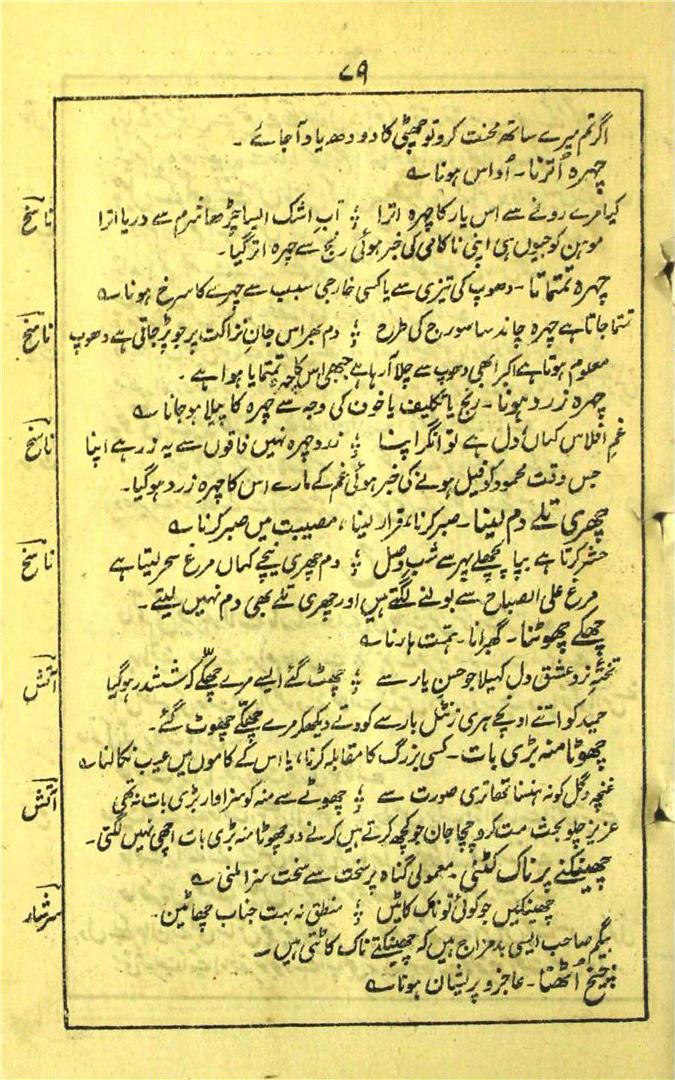 ۷۹
اگر تم میرے ساتھ محنت کرو تو چھٹی کا دودھ یاد آجائے ۔
چہرہ اُترنا۔ اُداس ہونا ؎
کیا مرے رونے سے اس یار کا چہرہ اترا ؛ آب اشک ایسا چڑھا شرم سے دریا اترا ناسخ
موہن کو جیوں ہی اپنی ناکامی کی خبر ہوئی رنج سے چہرہ اتر گیا۔
چہرہ تمتمانا۔ دھوپ کی تیزی سے یا کسی خارجی سبب سے چہرے کا سرخ ہونا ؎
تمتما جاتا ہے چہرہ چاند سا سورج کی طرح ؛ دم بھر اس جان نزاکت پر جو پڑ جاتی ہے دھوپ ناسخ
معلوم ہوتا ہے اکبر ابھی دھوپ سے چلا آرہا ہے جبھی اس کا چہرہ تمتمایا ہوا ہے ۔
چہرہ زرد ہونا۔ رنج یا تکلیف یا خون کی وجہ سے چہرہ کا پیلا ہو جانا ؎
غم افلاس کہاں دل ہے تونگر اپنا ؛ زرد چہرہ نہیں فاقوں سے یہ زر ہے اپنا ناسخ
جس وقت محمود کو فیل ہونے کی خبر ہوئی غم کے مارے اس کا چہرہ زرد ہوگیا۔
چھری تلے دم لینا۔ صبر کرنا، قرار لینا، مصیبت میں صبر کرنا ؎
حشر کرتا ہے بپا پچھلے پہر سے شب وصل ؛ دم چھری نیچے کہاں مرغ سحر لیتا ہے ناسخ
مرغ علی الصباح سے بولنے لگتے ہیں اور چھری تلے بھی دم نہیں لیتے۔
چھکے چھوٹنا۔ گھبرانا۔ ہمت ہارنا ؎
تختۂ نرد عشق دل کھیلا جو حسن یار سے ؛ چھٹ گئے ایسے مرے چھکّے کہ ششدر ہوگیا آتش
حمید کو اتنے اونچے ہری زنٹل بار سے کودتے دیکھکر مرے چھکّے چھوٹ گئے۔
چھوٹا منہ بڑی بات۔ کسی بزرگ کا مقابلہ کرنا، یا اس کے کاموں میں عیب نکالنا ؎
غنچہ و گل کو نہ ہنسنا تھا تری صورت سے ؛ چھوٹے سے منہ کو سزاوار بڑی بات نہ تھی آتش
عزیز چلو بحث مت کرو چچا جان جو کچھ کرتے ہیں کرنے دو چھوٹا منہ بڑی بات اچھی نہیں لگتی۔
چھینکنے پر ناک کٹنی۔ معمولی گناہ پر سخت سے سخت سزا ملنی ؎
چھینکیں جو کوئی تو ناک کاٹیں ؛ منطق نہ بہت جناب چھانٹیں۔ سرشار
بیگم صاحب ایسی بدمزاج ہیں کہ چھینکتے ناک کاٹتی ہیں۔
چیخ اُٹھنا۔ عاجز و پریشان ہونا ؎